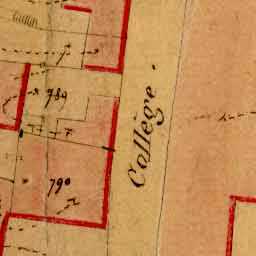 789
790
Collège.